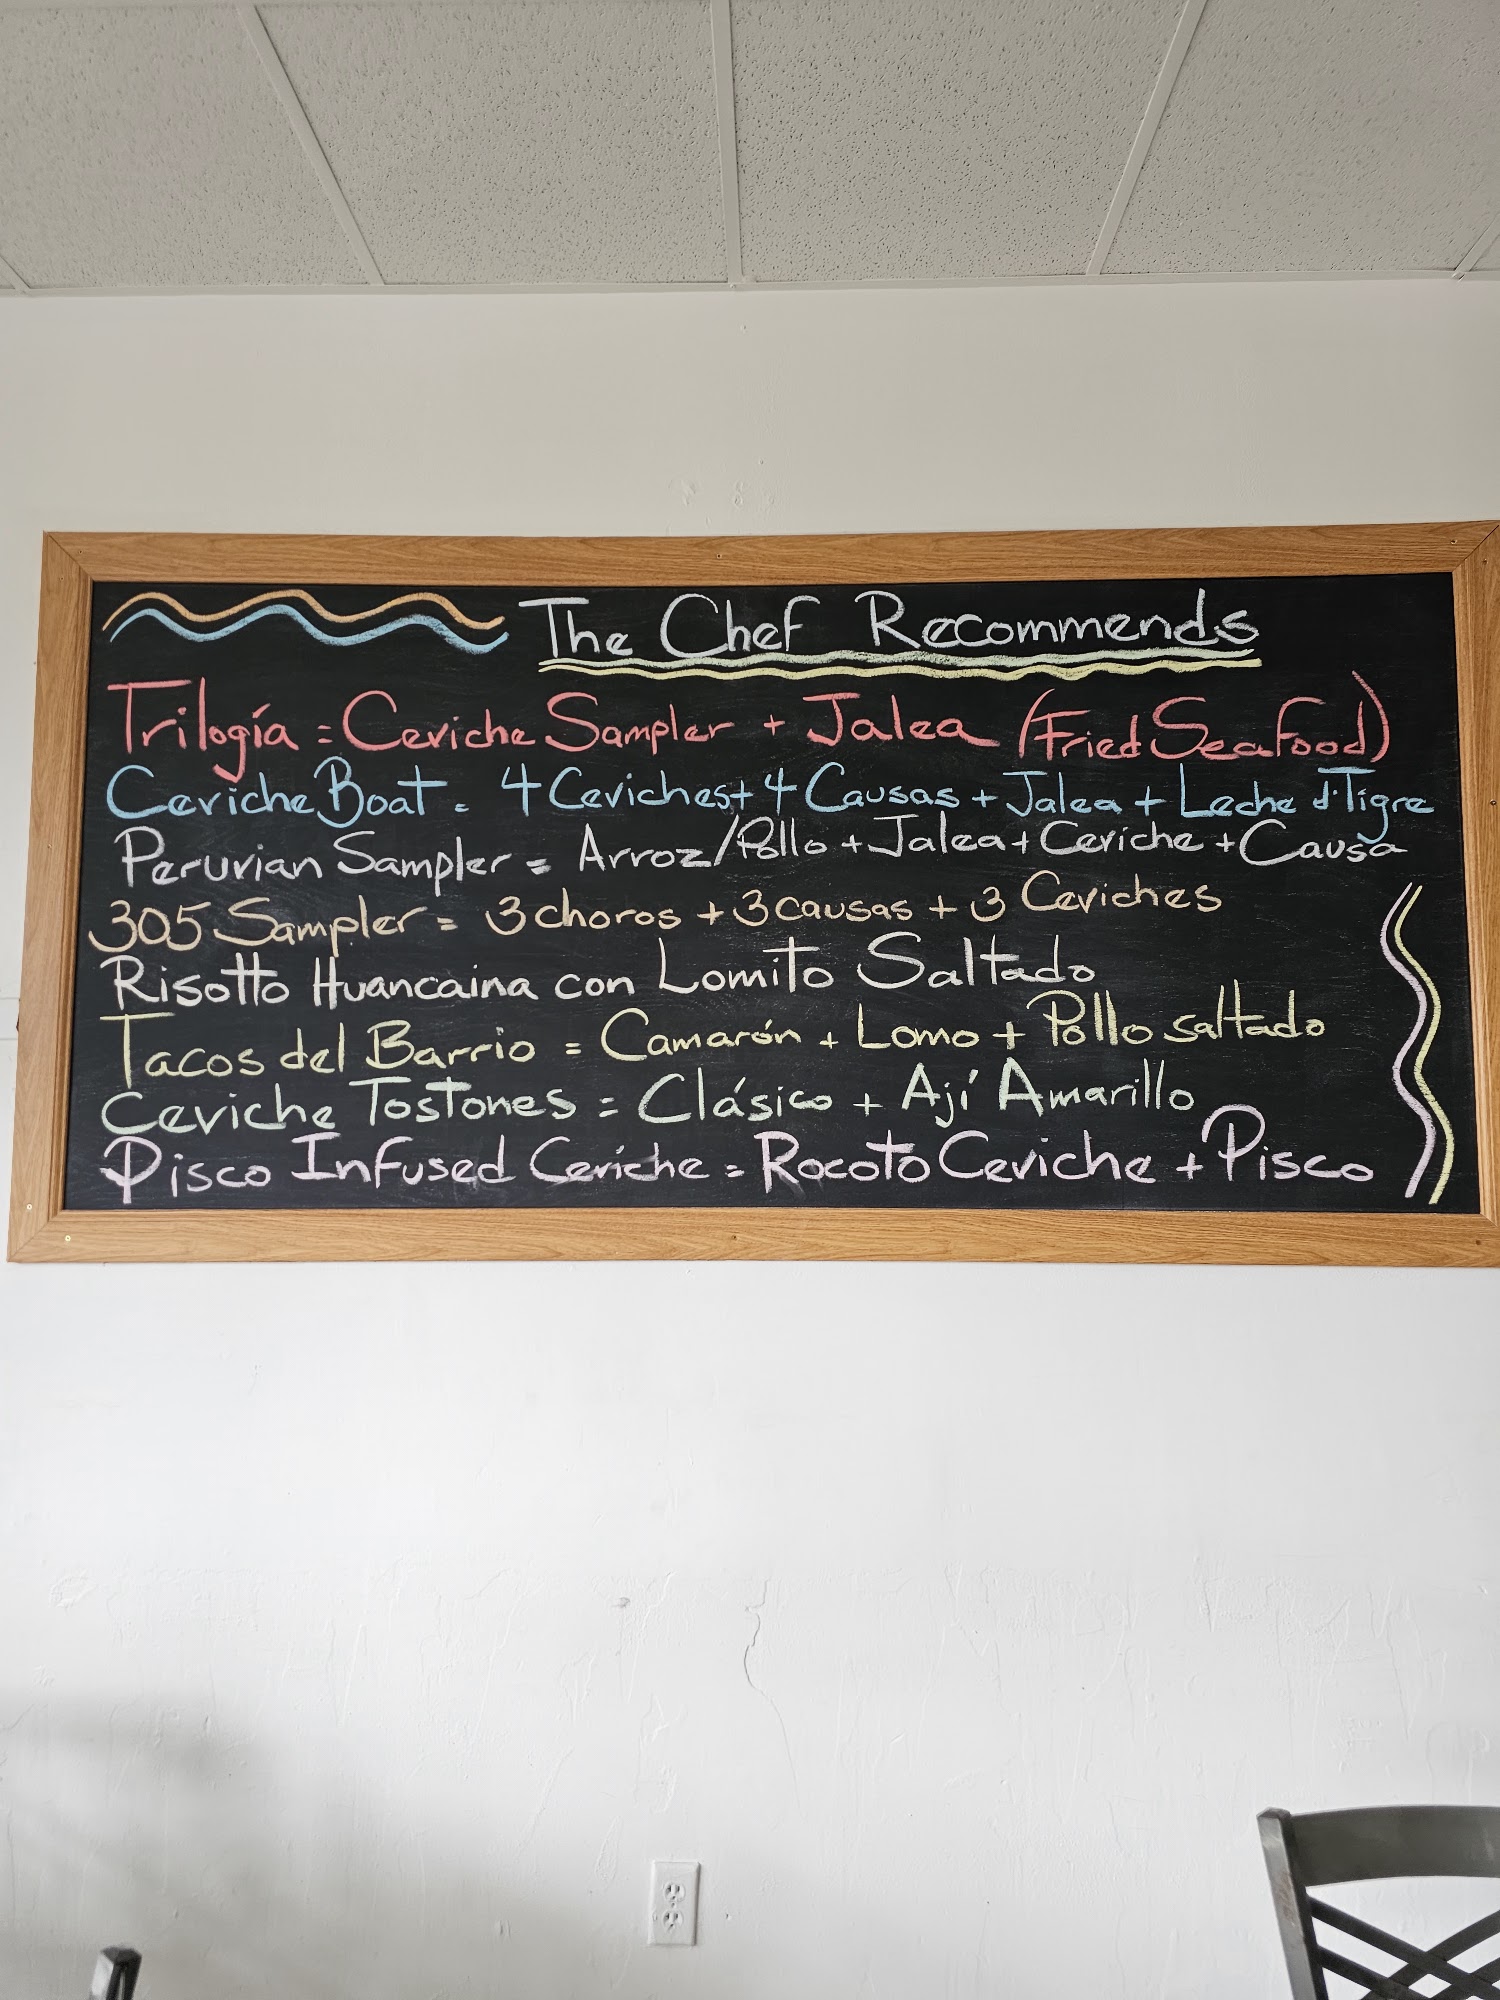 The Chef Recommends
Trilogía = Ceviche Sampler + Jalea (Fried Seafood)
Ceviche Boat = 4 Ceviches + 4 Causas + Jalea + Leche d' Tigre
Peruvian Sampler = Arroz/Pollo + Jalea + Ceviche + Causa
305 Sampler = 3 choros + 3 causas + 3 Ceviches
Risotto Huancaina con Lomito Saltado
Tacos del Barrio = Camarón + Lomo + Pollo saltado
Ceviche Tostones = Clásico + Ají Amarillo
Pisco Infused Ceviche = Rocoto Ceviche + Pisco